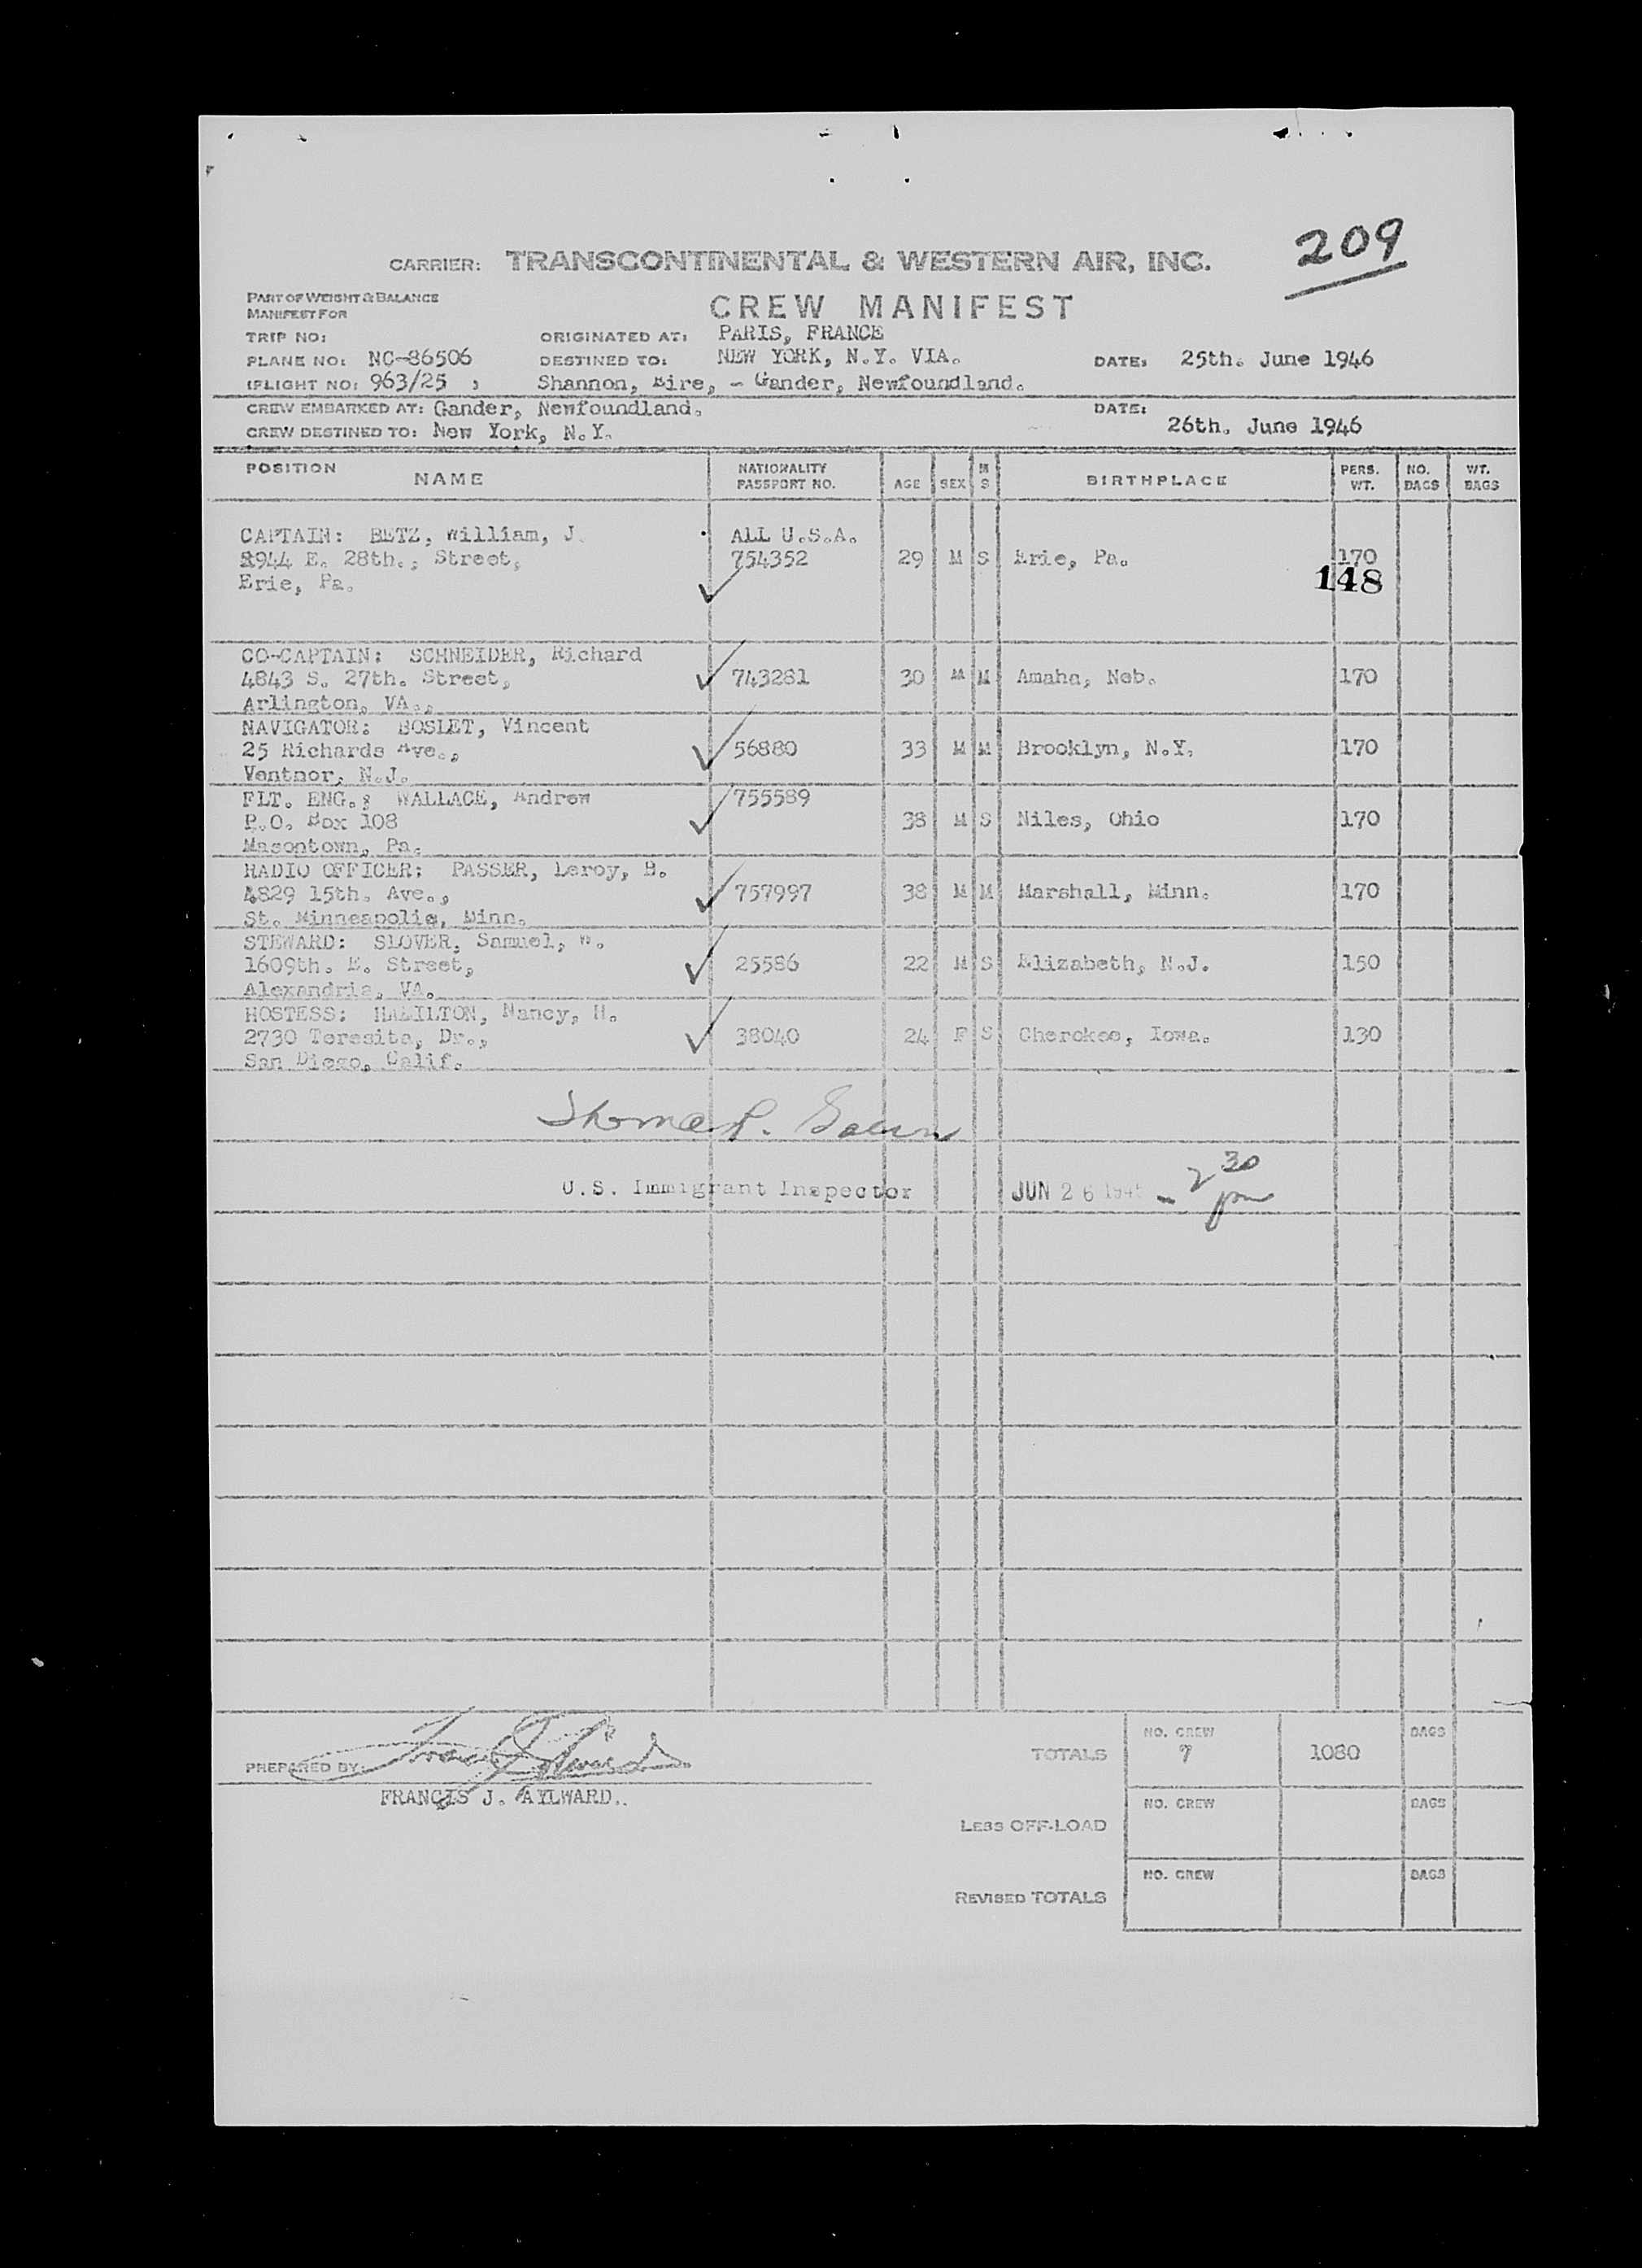 209
CARRIER: TRANSCONTINENTAL & WESTERN AIR, INC.
PART OF WEIGHT & BALANCE
MANIFEST FOR
CREW MANIFEST
TRIP NO: ORIGINATED AT: PARIS, FRANCE
PLANE NO: NC-86506 DESTINED TO: NEW YORK, N.Y. VIA. DATE: 25th. June 1946
FLIGHT NO: 963/25 , Shannon, Eire, - Gander, Newfoundland.
CREW EMBARKED AT: Gander, Newfoundland. DATE:
CREW DESTINED TO: New York, N.Y. 26th. June 1946
POSITION NAME NATIONALITY PASSPORT NO. AGE SEX M S BIRTHPLACE PERS. WT. NO. BAGS WT. BAGS
CAPTAIN: BETZ, William, J. ALL U.S.A.
2944 E. 28th., Street, 754352 29 M S Erie, Pa. 170
Erie, Pa. 148
CO-CAPTAIN: SCHNEIDER, Richard
4843 S. 27th. Street, 743281 30 M M Amaha, Neb. 170
Arlington, VA.,
NAVIGATOR: BOSLET, Vincent
25 Richards Ave., 56880 33 M M Brooklyn, N.Y. 170
Ventnor, N.J.
FLT. ENG.: WALLACE, Andrew 755589
P.O. Box 108 38 M S Niles, Ohio 170
Masontown, Pa.
RADIO OFFICER: PASSER, Leroy, B.
4829 15th. Ave., 757997 38 M M Marshall, Minn. 170
St. Minneapolis, Minn.
STEWARD: SLOVER, Samuel, W.
1609th. E. Street, 25586 22 M S Elizabeth, N.J. 150
Alexandria, VA.
HOSTESS: HAMILTON, Nancy, H.
2730 Teresita, Dr., 38040 24 F S Cherokee, Iowa. 130
San Diego, Calif.
U.S. Immigrant Inspector JUN 26 194 - 2 30 pm
PREPARED BY: TOTALS NO. CREW 7 1080 BAGS
FRANCIS J. AYLWARD.
LESS OFF-LOAD NO. CREW BAGS
REVISED TOTALS NO. CREW BAGS